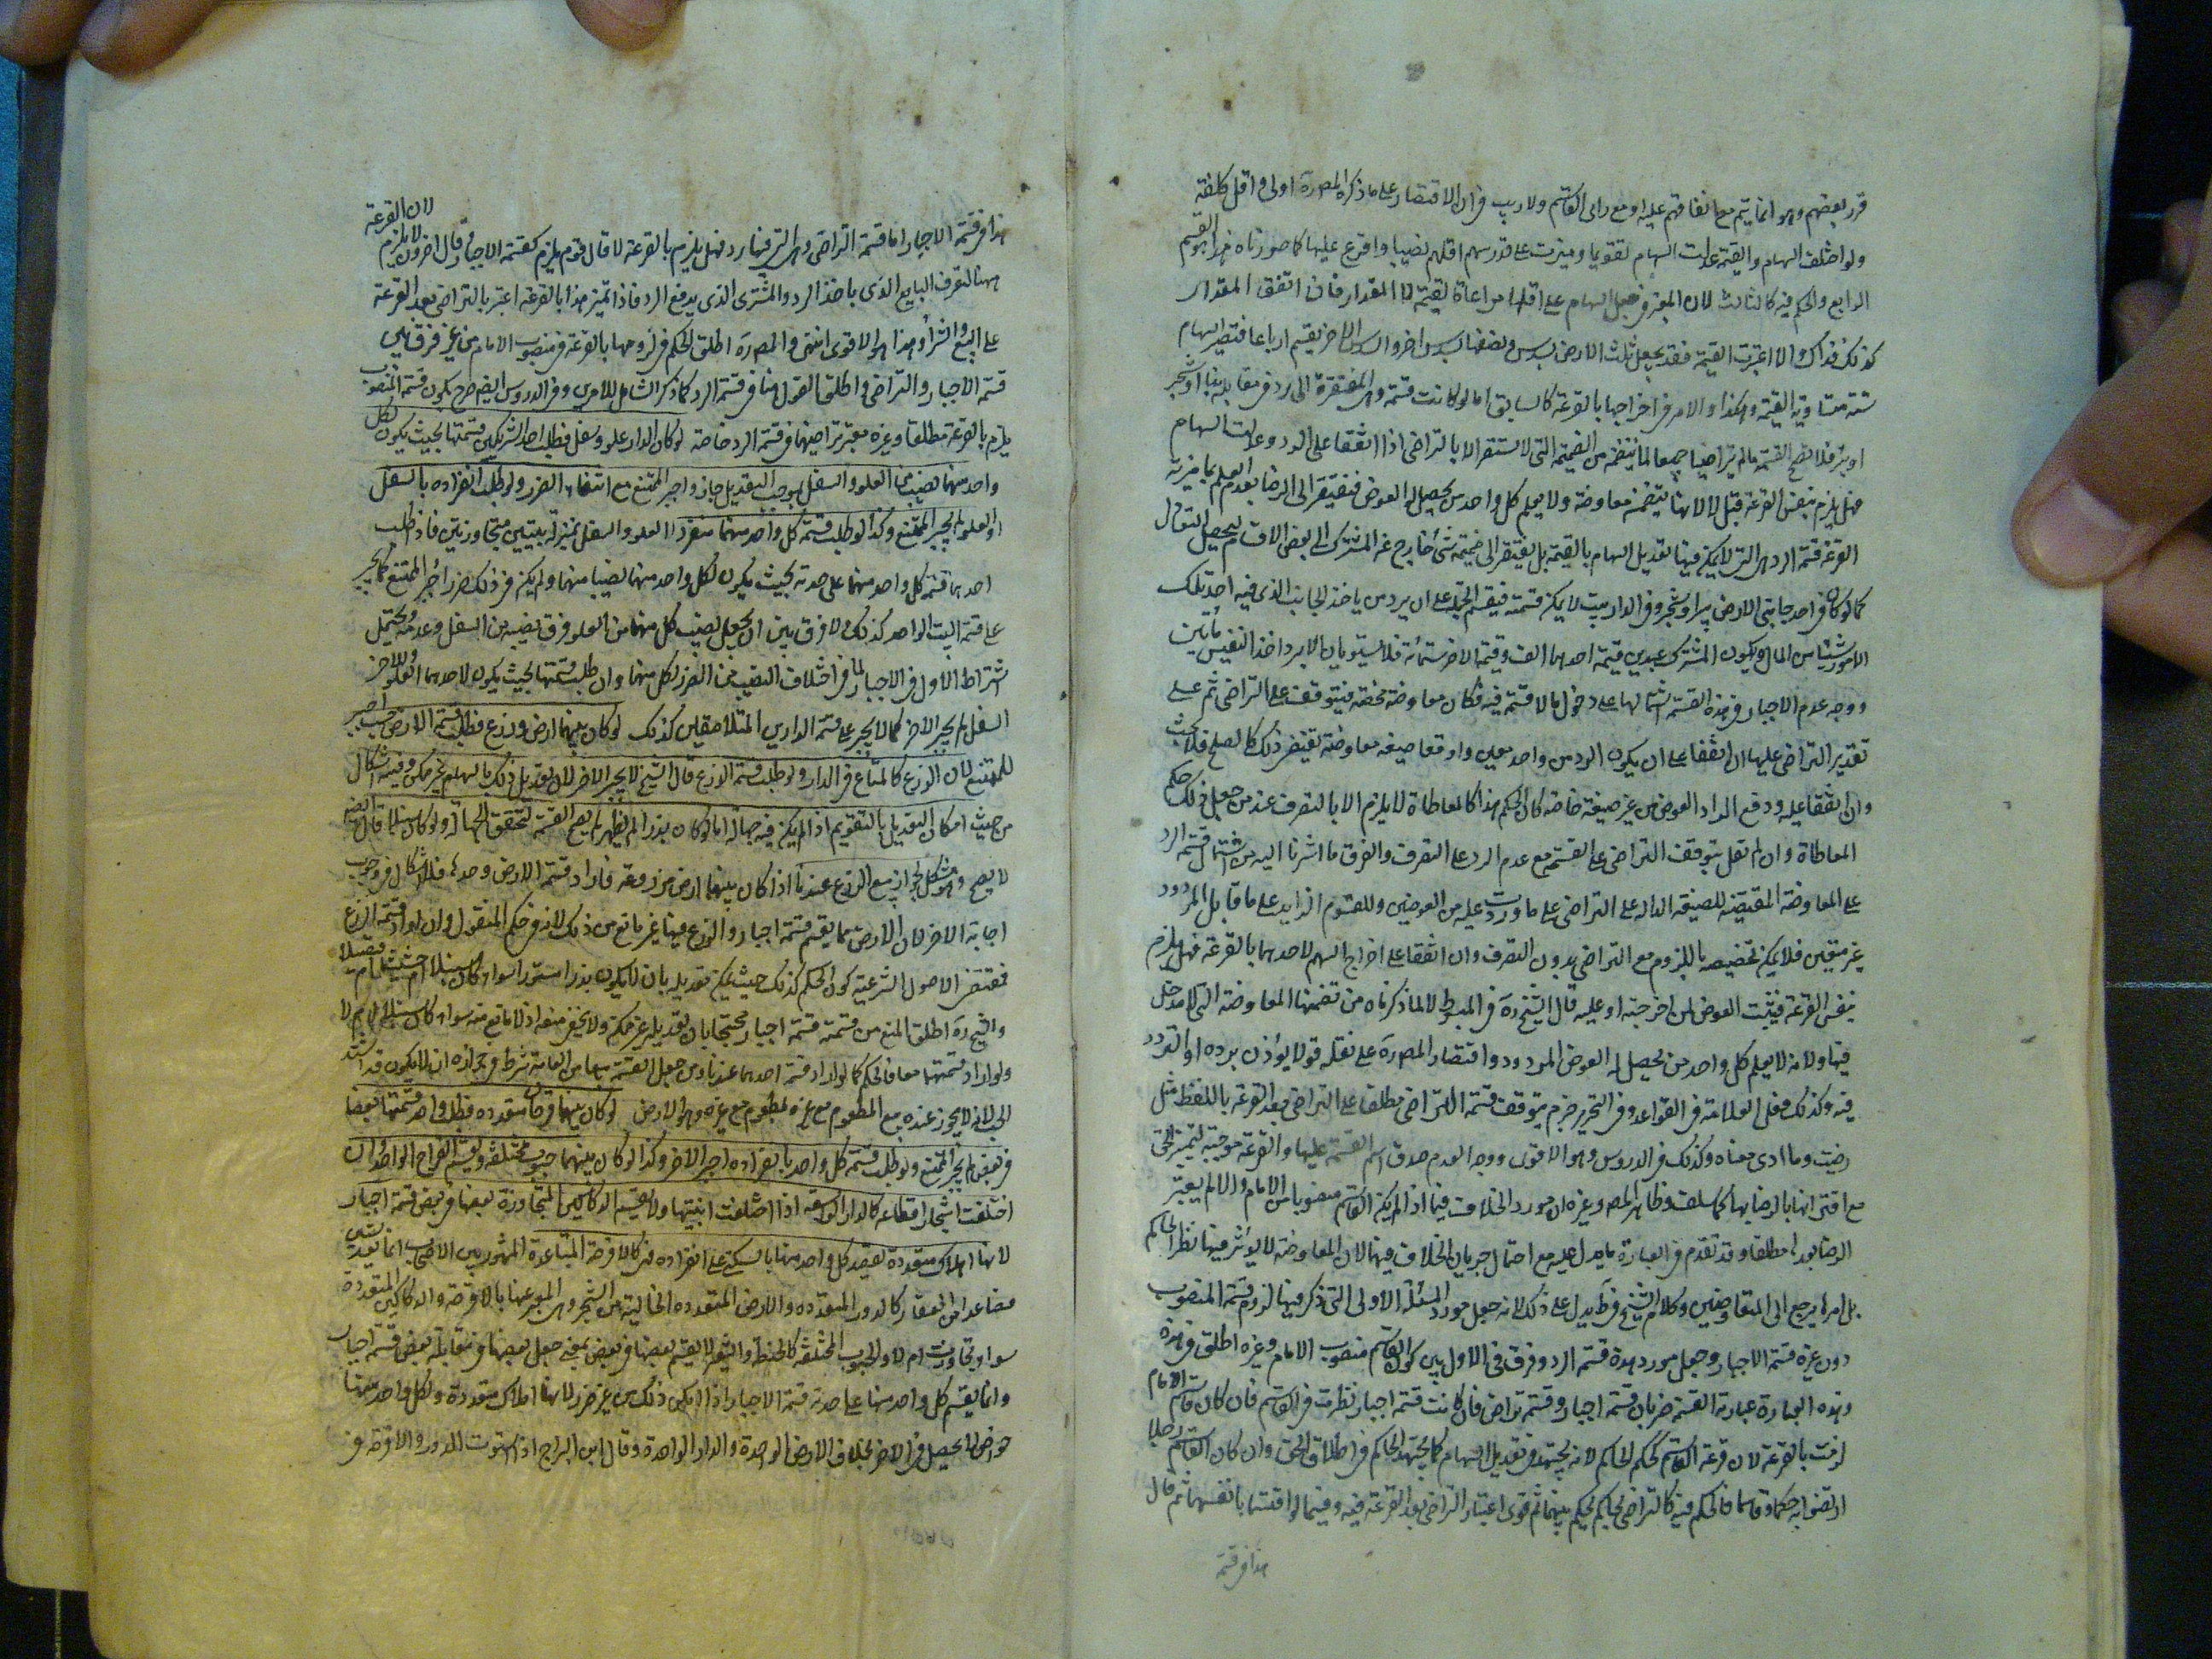 قرر بعضهم وهو انما يتم مع اتفاقهم عليه او مع راى القاسم ولا ريب فى ان الاقتصار على ما ذكره المصره اولى واقل كلفة
ولو اختلف السهام والقيمة عدلت السهام تقويما وميزت على قدر سهم اقلهم نصيبا واقرع عليها كما صورناه هذا هو القسم
الرابع والحكم فيه كالثالث لان المعتبر فى جعل السهام على اقلها مراعاة القيمة لا المقدار فان اتفق المقدار
كذلك فذاك والا اعتبرت القيمة فقد يجعل ثلث الارض بسدس ونصفها بسدس اخر والسدس الاخر يقسم ارباعا فتصير السهام
ستة متساوية القيمة وهكذا والامر فى اخراجها بالقرعة كالسابق اما لو كانت قسمة رد وهى المفتقرة الى رد فى مقابلة بناء او شجر
او بئر فلا تصح القسمة ما لم يتراضيا جميعا لما يتضمنه من الضميمة التى لا تستقر الا بالتراضى اذا اتفقا على الرد وعدلت السهام
فهل يلزم بنفس القرعة قيل لا لانها تتضمن معاوضة ولا يعلم كل واحد من يحصل له العوض فيفتقر الى الرضا بعد العلم بما ميزته
القرعة قسمة الرد هى التى لا يمكن فيها تعديل السهام بالقيمة بل يفتقر الى ضميمة شئ خارج عن المشترك الى بعض الاقسام ليحصل التعادل
كما لو كان فى احد جانبى الارض بئر او شجر وفى الدار بيت لا يمكن قسمته فيقسم الجملة على ان يرد من ياخذ الجانب الذى فيه احد تلك
الامور شيئا من المال او يكون المشترك عبدين قيمة احدهما الف وقيمة الاخر ستمائة فلا يستويان الا برد اخذ النفيس مأتين
ووجه عدم الاجبار فى هذه القسمة اشتمالها على دخول ما لا قسمة فيه فكان معاوضة محضة فيتوقف على التراضى ثم على
تقدير التراضى عليها ان اتفقا على ان يكون الرد من واحد معين واوقعا صيغة معاوضة تقتضى ذلك كالصلح فلا بحث
وان اتفقا عليه ودفع الراد العوض من غير صيغة خاصة كان الحكم هنا كالمعاطاة لا يلزم الا بالتصرف عند من جعل ذلك حكم
المعاطاة وان لم نقل بتوقف التراضى على القسمة مع عدم الرد على التصرف والفرق ما اشرنا اليه من اشتمال قسمة الرد
على المعاوضة المقتضية للصيغة الدالة على التراضى على ما وردت عليه من العوضين وللمقسوم الزايد على ما قابل المردود
غير متعين فلا يمكن تخصيصه باللزوم مع التراضى بدون التصرف وان اتفقا على اخراج السهم لاحدهما بالقرعة فهل يلزم
بنفس القرعة فيثبت العوض لمن اخرجته او عليه قال الشيخ ره فى المبسوط لا لما ذكرناه من تضمنها المعاوضة التى لا مدخل
فيها ولانه لا يعلم كل واحد من يحصل له العوض المردود واقتصار المصره على نقله قولا يؤذن برده او التردد
فيه وكذلك فعل العلامة فى القواعد وفى التحرير جزم بتوقف قسمة التراضى مطلقا على التراضى بعد القرعة باللفظ مثل
رضيت وما ادى معناه وكذلك فى الدروس وهو الاقوى ووجه العدم صدق اسم القسمة عليها والقرعة موجبة لتميز الحق
مع اقترانها بالرضا بها كما سلف وظاهر المصر وغيره ان مورد الخلاف فيما اذا لم يكن القاسم منصوبا من الامام والا لم يعتبر
الرضا بعدها مطلقا وقد تقدم فى العبارة ما يدل عليه مع احتمال جريان الخلاف فيها لان المعاوضة لا يؤثر فيها نظر الحاكم
بل امرها يرجع الى المتعاوضين وكلام الشيخ فى ط يدل على ذلك لانه جعل مورد المسئلة الاولى التى ذكر فيها لزوم قسمة المنصوب
دون غيره قسمة الاجبار وجعل مورد هذه قسمة الرد وفرق فى الاول بين كون القاسم منصوب الامام وغيره اطلق فى هذه
وهذه العبارة عبارته القسمة ضربان قسمة اجبار وقسمة تراض فان كانت قسمة اجبار نظرت فى القاسم فان كان قاسم الامام
لزمت بالقرعة لان قرعة القاسم كحكم الحاكم لانه يجتهد فى تعديل السهام كما يجتهد الحاكم فى اطلاق الحق وان كان القاسم رجلا
ارتضوا به حكما وقاسما فالحكم فيه كالتراضى بحاكم يحكم بينهما ثم قوى اعتبار التراضى بعد القرعة فيه وفيما لو اقتسما بانفسهما ثم قال
هذا فى قسمة
هذا فى قسمة الاجبار اما قسمة التراضى وهى التى فيها رد فهل يلزم بالقرعة لا قال قوم يلزم كقسمة الاجبار وقال اخرون لا يلزم لان القرعة
هنا لتعرف البايع الذى ياخذ الرد والمشترى الذى يدفع الرد فاذا تميز هذا بالقرعة اعتبر بالتراضى بعد القرعة
على البيع والشراء وهذا هو الاقوى انتهى والمصره اطلق الحكم فى لزومها بالقرعة فى منصوب الامام من غير فرق بين
قسمة الاجبار والتراضى واطلق القول هنا فى قسمة الرد كما ذكر الشامل للامرين وفى الدروس ايضا صرح بكون قسمة المنصوب
يلزم بالقرعة مطلقا وغيره معتبر تراضيهما فى قسمة الرد خاصة لو كان لدار علو وسفل فطلب احد الشريكين قسمتها بحيث يكون لكل
واحد منهما نصيب من العلو والسفل بموجب التعديل جاز واجبر الممتنع مع انتفاء الضرر ولو طلب انفراده بالسفل
او العلو لم يجبر الممتنع وكذا لو طلب قسمة كل واحد منهما منفردا العلو والسفل بمنزلة بيتين متجاورتين فاذا طلب
احدهما قسمة كل واحد منهما على حدته بحيث يكون لكل واحد منهما نصيبا منهما ولم يكن فى ذلك ضرر اجبر الممتنع كما يجبر
على قسمة البيت الواحد كذلك ولا فرق بين ان يجعل نصيب كل منهما من العلو فوق نصيبه من السفل وعدمه ويحتمل
اشتراط الاول فى الاجبار لما فى اختلاف النصيب من الضرر لكل منهما وان طلب قسمتها بحيث يكون لاحدهما العلو وللاخر
السفل لم يجبر الاخر كما لا يجبر على قسمة الدارين المتلاصقين كذلك لو كان بينهما ارض وزرع فطلب قسمة الارض حسب اجبر
الممتنع لان الزرع كالمتاع فى الدار ولو طلب قسمة الزرع قال الشيخ لا يجبر الاخر لان تعديل ذلك بالسهام غير ممكن وفيه اشكال
من حيث امكان التعديل بالتقويم اذا لم يكن فيه جهالة اما لو كان بذرا لم يظهر لم يصح القسمة لتحقق الجهالة ولو كان سنبلا قال ايضا
لا يصح وهو مشكل لجواز بيع الزرع عندنا اذا كان بينهما ارض مزروعة فاراد قسمة الارض وحدها فلا اشكال فى وجوب
اجابة الاخر لان الارض مما يقسم قسمة اجبار والزرع فيها غير مانع من ذلك لانه فى حكم المنقول وان اراد قسمة الزرع
فمقتضى الاصول الشرعية كون الحكم كذلك حيث يمكن تعديله بان لا يكون بذرا مستورا سواء كان سنبلا ام حشيشا ام قصيلا
والشيخ ره اطلق المنع من قسمته قسمة اجبار محتجا بان تعديله غير ممكن ولا يخفى منعه اذ لا مانع منه سواء كان سنبلا ام لا
ولو ارادا قسمتهما معا فالحكم كما لو اراد قسمة احدهما عندنا ومن جعل القسمة بيعا من العامة شرط فى جوازه ان لا يكون قد اشتد
الحب لانه لا يجوز عنده بيع المطعوم مع غيره بمطعوم مع غيره وهو الارض لو كان بينهما قرحان متعددة فطلب واحد قسمتها بعضا
فى بعض لم يجبر الممتنع ولو طلب قسمة كل واحد بانفراده اجبر الاخر وكذا لو كان بينهما حبوب مختلفة ويقسم القراح الواحد وان
اختلفت اشجار اقطاعه كالدار الواسعة اذا اختلفت ابنيتها ولا يقسم الدكاكين المتجاورة بعضها فى بعض قسمة اجبار
لانها املاك متعددة يقصد كل واحد منها بالسكنى على انفراده فى كالاقرحة المتباعدة المشهور بين الاصحاب انما تعدد
فصاعدا من العقار كالدور المتعددة والارض المتعددة الخالية من الشجر وهى المعبر عنها بالاقرحة والدكاكين المتعددة
سواء تجاورت ام لا والحبوب المختلفة كالحنطة والشعير لا يقسم بعضها فى بعض بمعنى جعل بعضها فى مقابلة بعض قسمة اجبار
وانما يقسم كل واحد منها على حدته قسمة الاجبار اذا امكن ذلك من غير ضرر لانها املاك متعددة ولكل واحد منها
خواص لا يحصل فى الاخر بخلاف الارض الواحدة والدار الواحدة وقال ابن البراج اذا استوت الدور والاقرحة فى